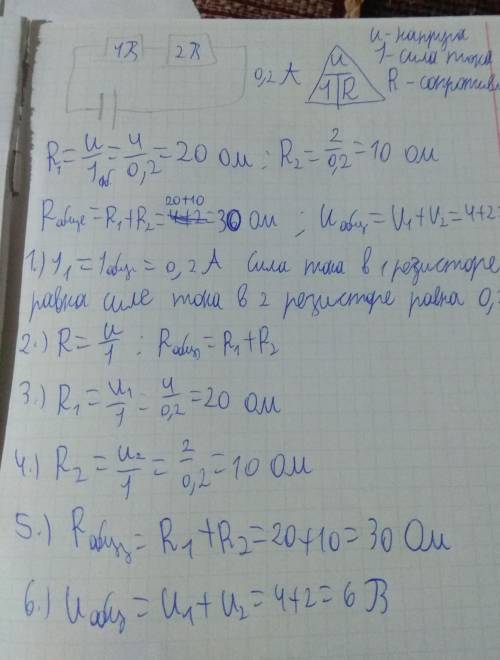 4В 2В
u - напруга
I - сила тока
0,2 А
U
I R
R - сопротивл
R₁ = u/I об. = 4/0,2 = 20 Ом ; R₂ = 2/0,2 = 10 Ом
20+10
R общ = R₁ + R₂ = 30 Ом ; U общ = U₁ + U₂ = 4+2 =
1.) I₁ = I общ = 0,2 А сила тока в 1 резисторе
равна силе тока в 2 резисторе равна 0,
2.) R = u/I ; R общ = R₁ + R₂
3.) R₁ = u₁/I = 4/0,2 = 20 Ом
4.) R₂ = u₂/I = 2/0,2 = 10 Ом
5.) R общ = R₁ + R₂ = 20+10 = 30 Ом
6.) U общ = U₁ + U₂ = 4+2 = 6 В